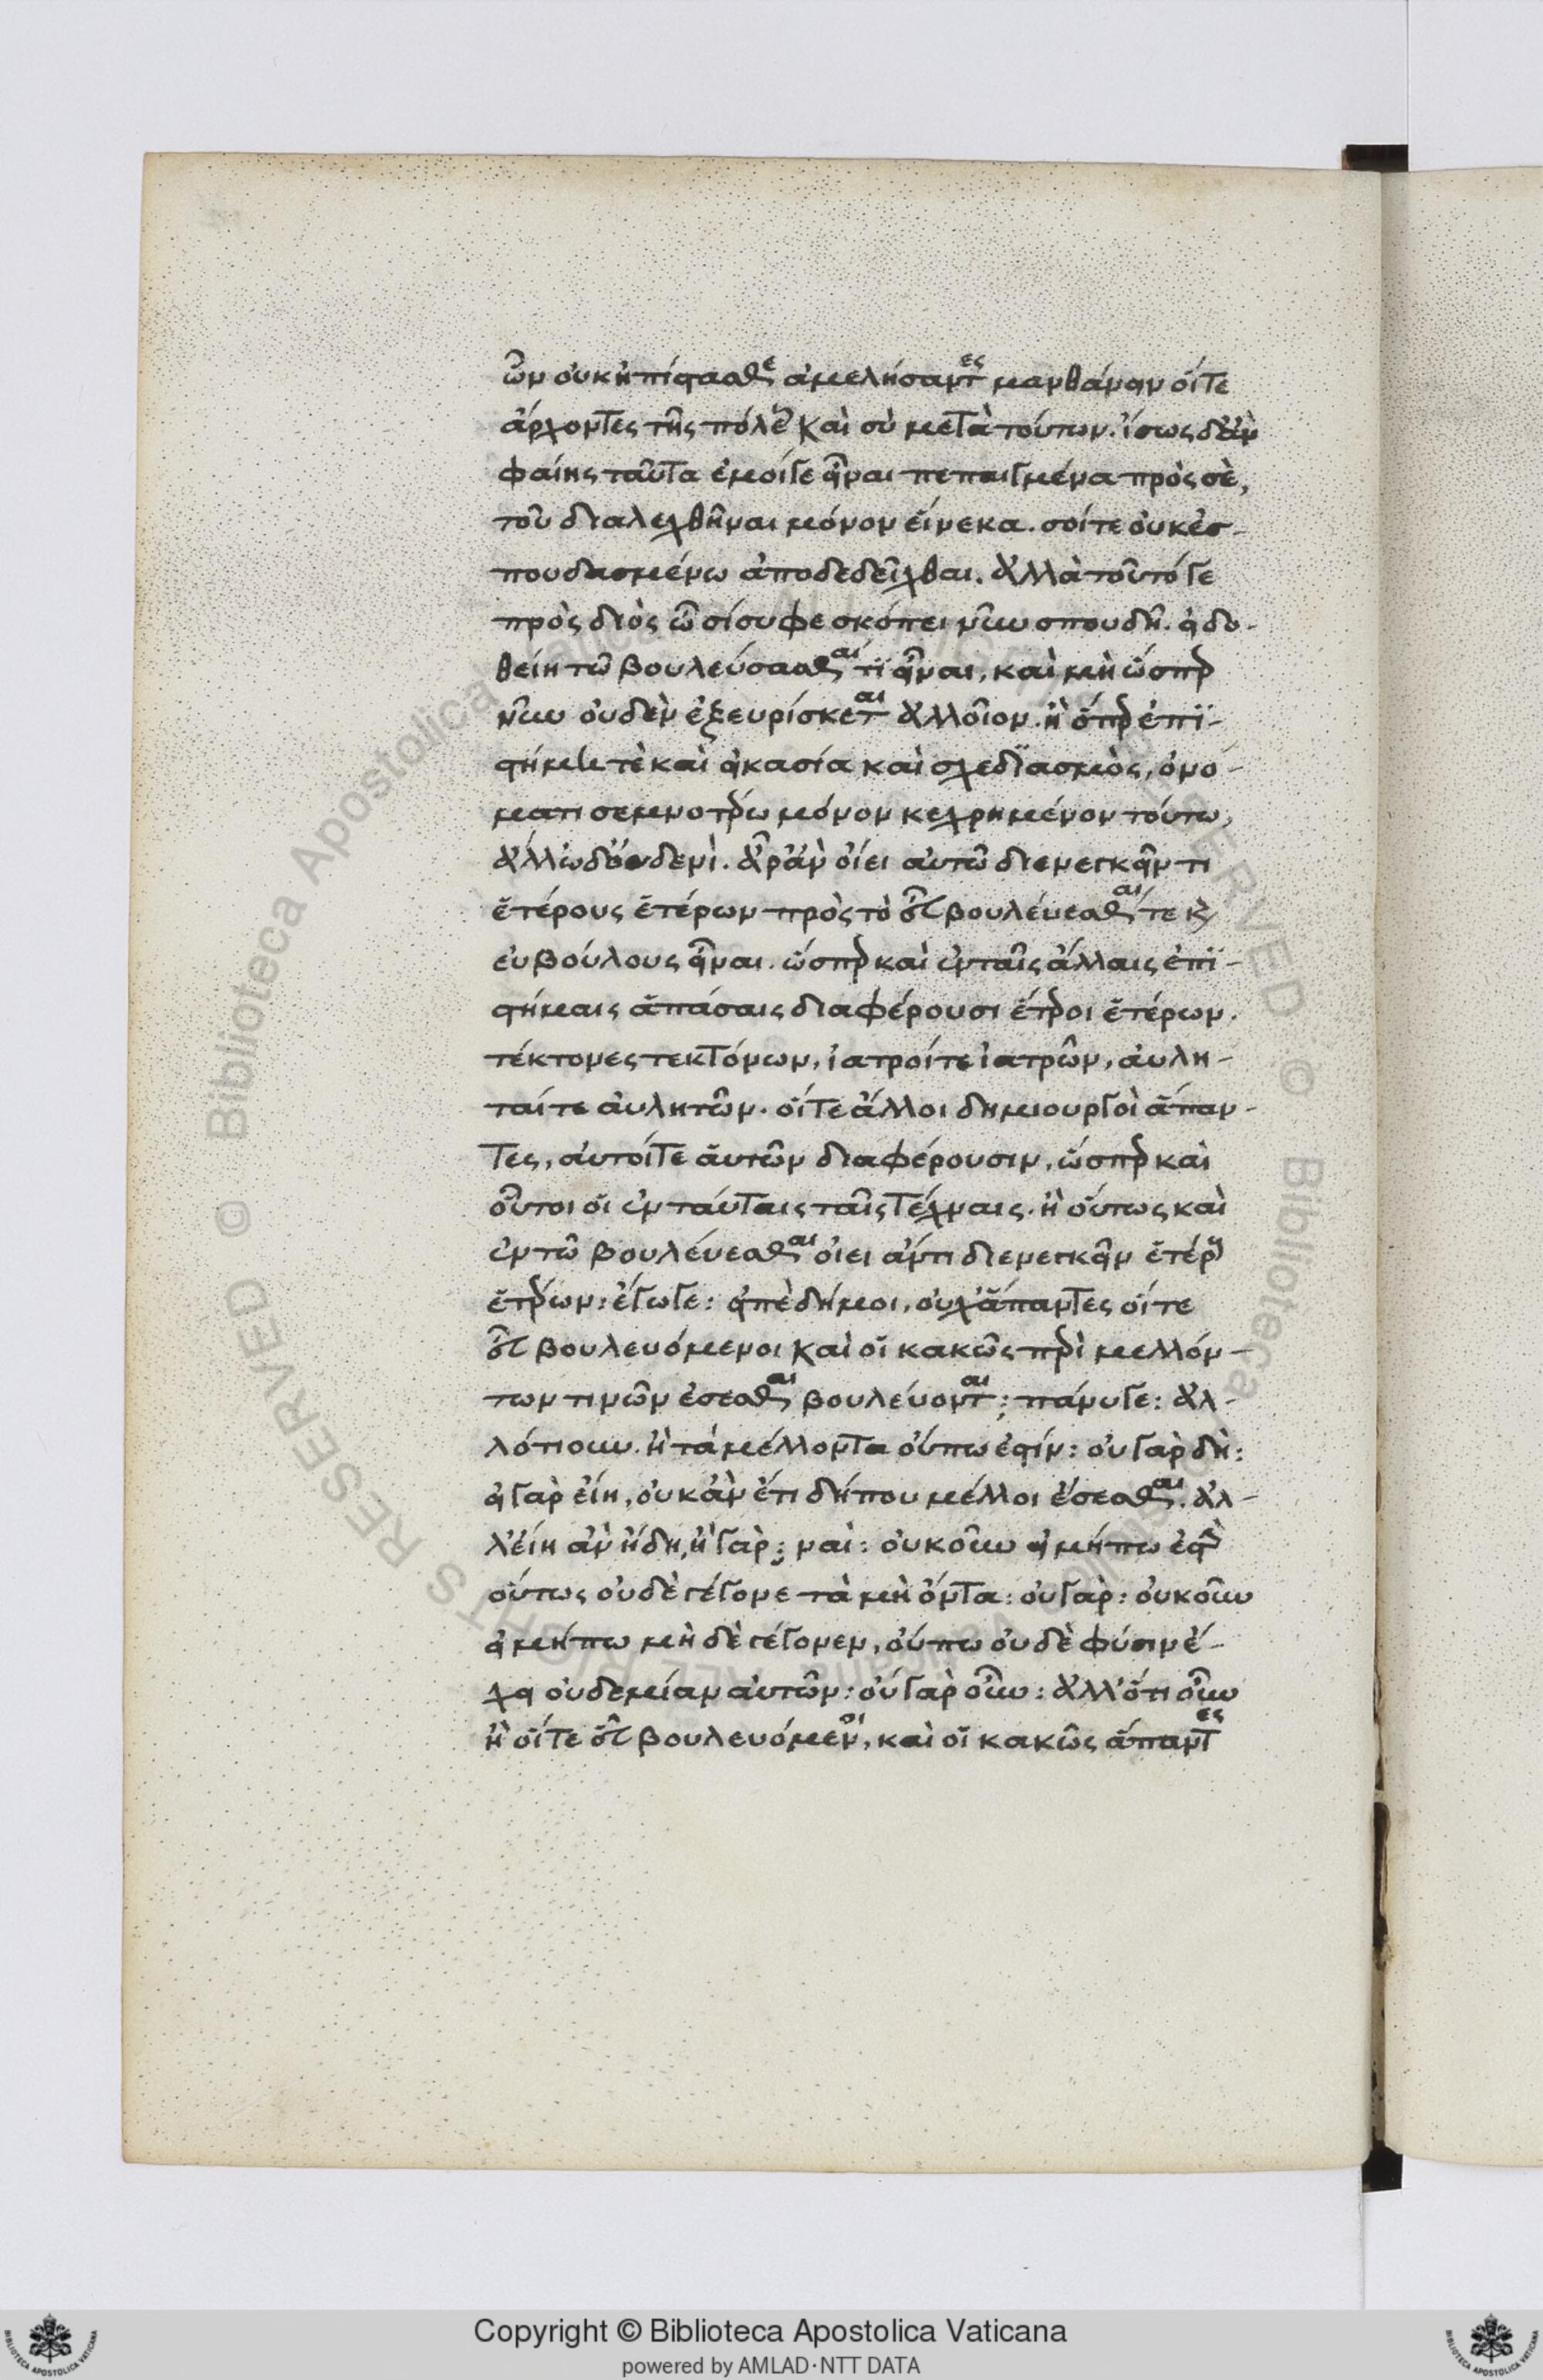 ὧν οὐκ ἠπίστασθε ἀμελήσαντες μανθάνειν οἵτε
ἄρχοντες τῆς πόλεως καὶ σὺ μετὰ τούτων. ἴσως δ' ἂν
φαίης ταῦτα ἐμοίγε εἶναι πεπαιγμένα πρὸς σὲ,
τοῦ διαλεχθῆναι μόνον εἵνεκα. σοίτε οὐκ ἐσ-
πουδασμένω ἀποδεδεῖχθαι. ἀλλὰ τοῦτό γε
πρὸς διὸς ὦ σίσυφε σκόπει νῦν σπουδῆ. εἰ δο-
θείη τῶ βουλεύσασθαί τι εἶναι, καὶ μὴ ὥσπερ
νῦν οὐδὲν ἐξευρίσκεται ἀλλοῖον. ἢ ὅπερ ἐπι-
στήμη τὲ καὶ εἰκασία καὶ σχεδιασμὸς, ὀνό-
ματι σεμνοτέρω μόνον κεχρημένον τούτω,
ἄλλω δ' οὐδενὶ. ἆρ' ἂν οἴει αὐτῶ διενεγκεῖν τι
ἑτέρους ἑτέρων πρὸς τὸ εὖ βουλεύεσθαί τε καὶ
εὐβούλους εἶναι. ὥσπερ καὶ ἐν ταῖς ἄλλαις ἐπι-
στήμαις ἁπάσαις διαφέρουσι ἕτεροι ἑτέρων.
τέκτονες τεκτόνων, ἰατροίτε ἰατρῶν, αὐλη-
ταίτε αὐλητῶν. οἵτε ἄλλοι δημιουργοὶ ἅπαν-
τες, αὐτοίτε αὑτῶν διαφέρουσιν, ὥσπερ καὶ
οὗτοι οἱ ἐν ταύταις ταῖς τέχναις. ἢ οὕτως καὶ
ἐν τῶ βουλεύεσθαι οἴει ἄν τι διενεγκεῖν ἑτέρους
ἑτέρων: ἔγωγε: εἰπὲ δή μοι, οὐχ ἅπαντες οἵτε
εὖ βουλευόμενοι καὶ οἱ κακῶς περὶ μελλόν-
των τινῶν ἔσεσθαι βουλεύονται; πάνυ γε: ἄλ-
λό τι οὖν. ἢ τὰ μέλλοντα οὔπω ἐστίν: οὐ γὰρ δὴ:
εἰ γὰρ εἴη, οὐκ ἂν ἔτι δήπου μέλλοι ἔσεσθαι. ἀλ-
λ' εἴη ἂν ἤδη, ἦ γὰρ; ναὶ: οὐκοῦν εἰ μήπω ἐστὶ
οὕτως οὐδὲ γέγονε τὰ μὴ ὄντα: οὐ γὰρ: οὐκοῦν
εἰ μήπω μὴ δὲ γέγονεν, οὔπω οὐδὲ φύσιν ἔ-
χει οὐδεμίαν αὐτῶν: οὐ γὰρ οὖν: ἄλλ' ὅτι οὖν
ἢ οἵτε εὖ βουλευόμενοι, καὶ οἱ κακῶς ἅπαντες
Copyright © Biblioteca Apostolica Vaticana
powered by AMLAD·NTT DATA